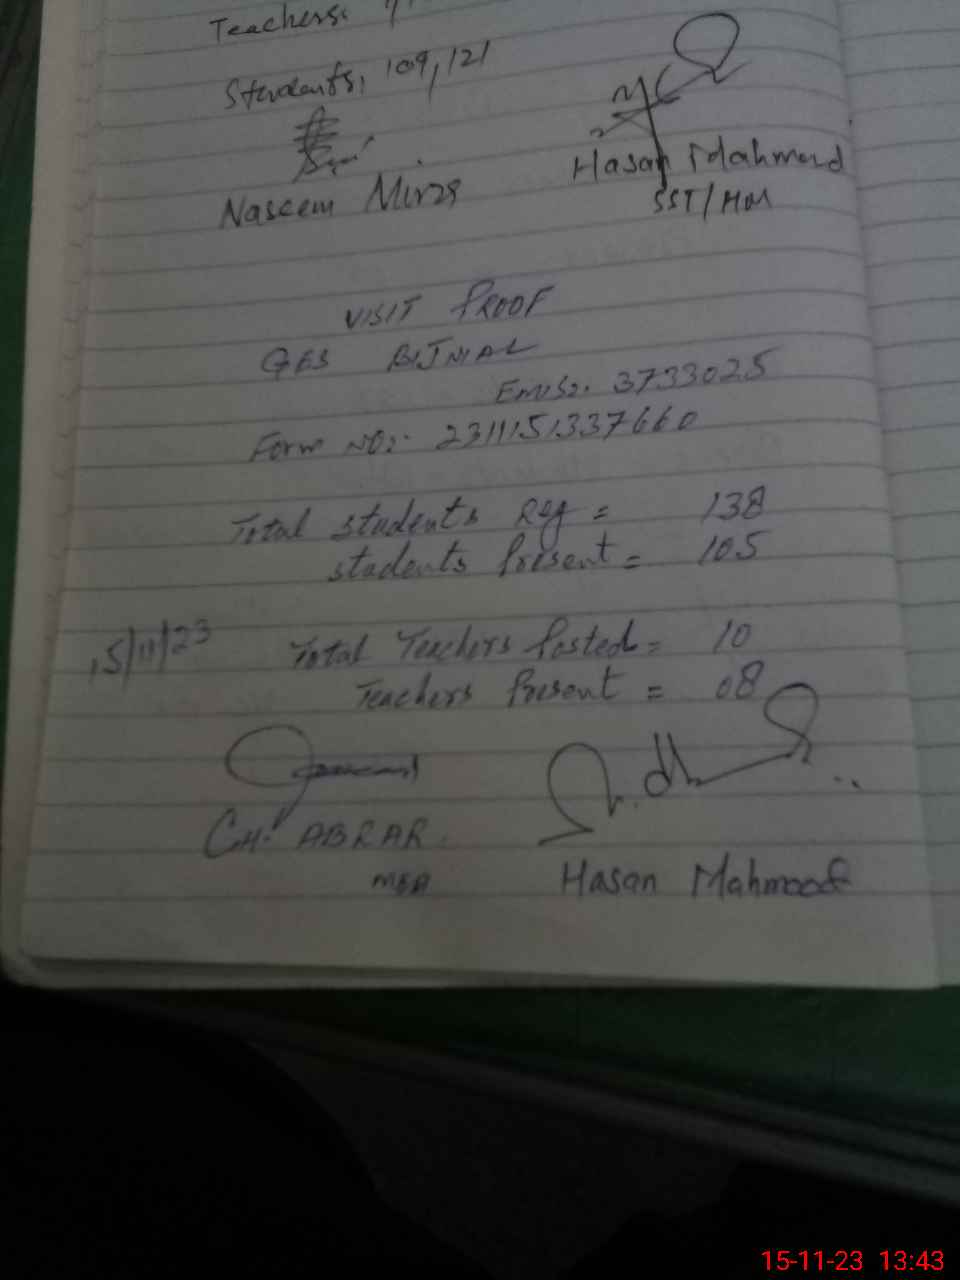 Teachers:
Students, 109, 121
Naseem Mirza
Hasan Mahmood
SST/HM
VISIT PROOF
GES BIJNIAL
Emis:. 3733025
Form NO:- 231115133 7660
Total students Reg = 138
students Present = 105
15/11/23
Total Teachers Posted = 10
Teachers Present = 08
CH. ABRAR
MEA
Hasan Mahmood
15-11-23 13:43